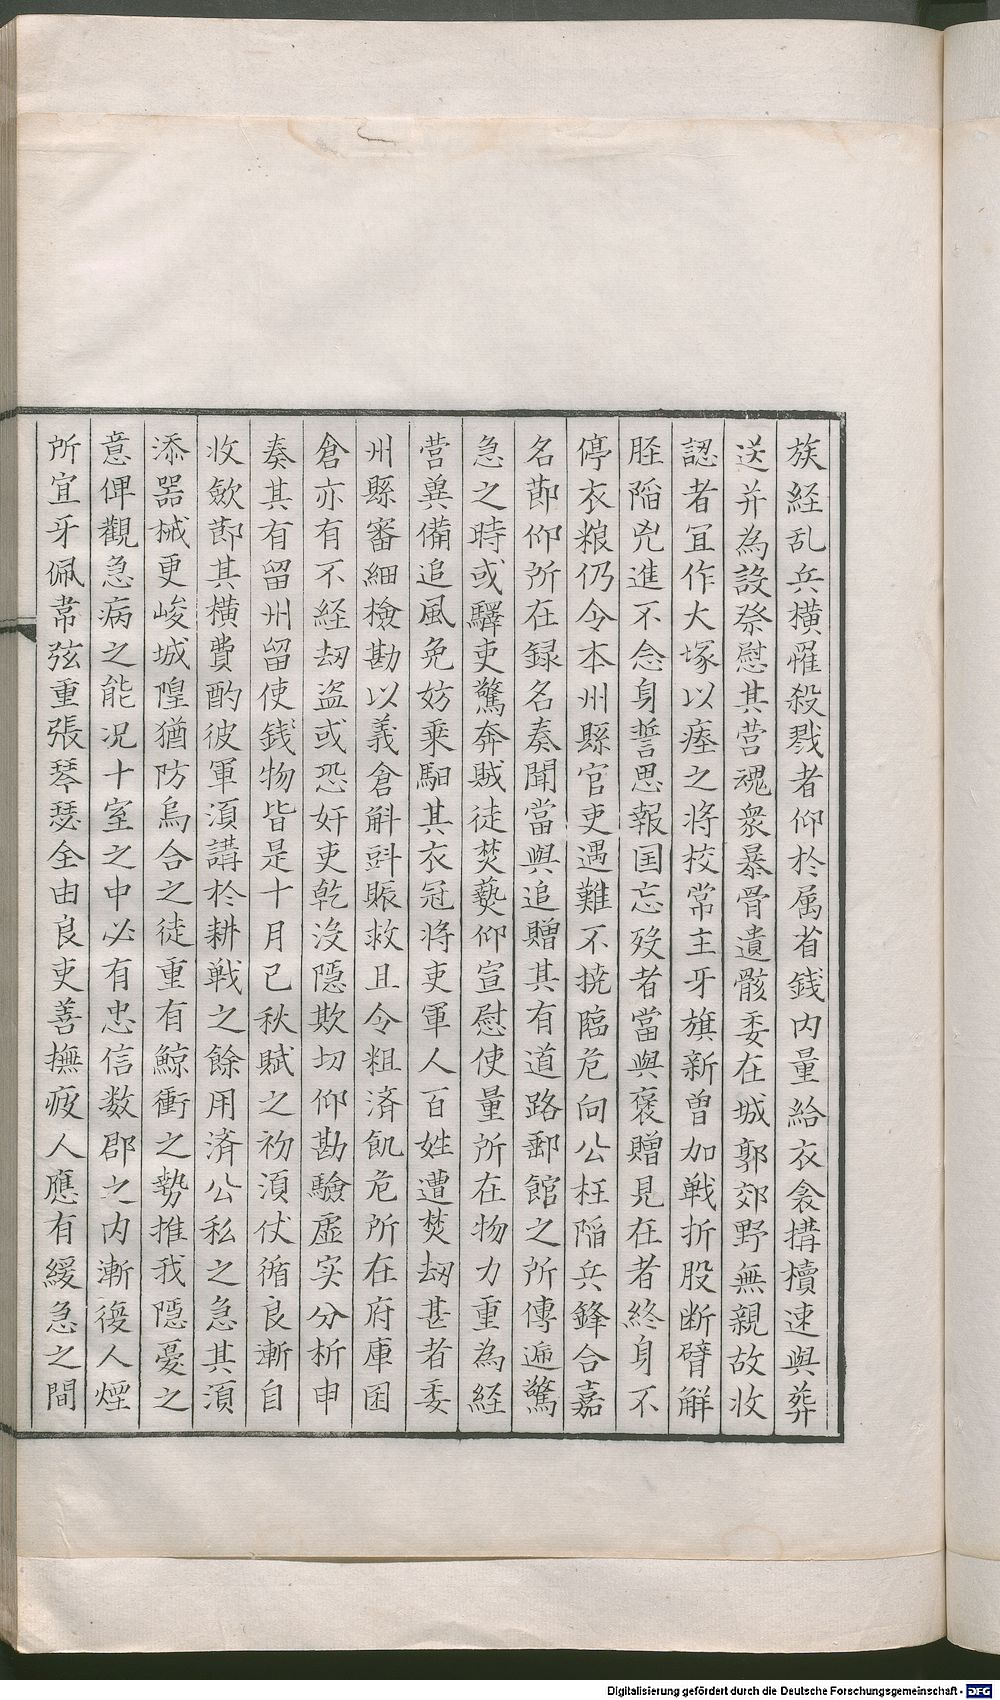 族経乱兵横罹殺戮者仰於属省錢内量給衣衾搆櫝速與葬
送并為設祭慰其営魂衆暴骨遺骸委在城郭郊野無親故收
認者冝作大塚以瘞之将校常主牙旗新曽加戦折股断臂觧
胵陷兇進不念身誓思報国忘殁者當與褒贈見在者終身不
停衣粮仍令本州縣官吏遇難不撓臨危向公枉陷兵鋒合嘉
名莭仰所在録名奏聞當與追贈其有道路郵館之所傳遞驚
急之時或驛吏驚奔賊徒焚爇仰宣慰使量所在物力重為経
营兾備追風免妨乗馹其衣冠将吏軍人百姓遭焚刼甚者委
州縣審細檢勘以義倉斛㪷賑救且令粗済飢危所在府庫囷
倉亦有不経刼盗或恐奸吏乾沒隱欺切仰勘驗虚实分析申
奏其有留州留使錢物皆是十月已秋賦之初湏仗循良漸自
收歛莭其横費酌彼軍湏講於耕戦之餘用済公私之急其湏
添器械更峻城隍猶防烏合之徒重有鯨衝之勢推我隱憂之
意俾觀急病之能况十室之中必有忠信数郡之内漸復人煙
所宜牙佩韋弦重張琴瑟全由良吏善撫疲人應有緩急之間
Digitalisierung gefördert durch die Deutsche Forschungsgemeinschaft - DFG